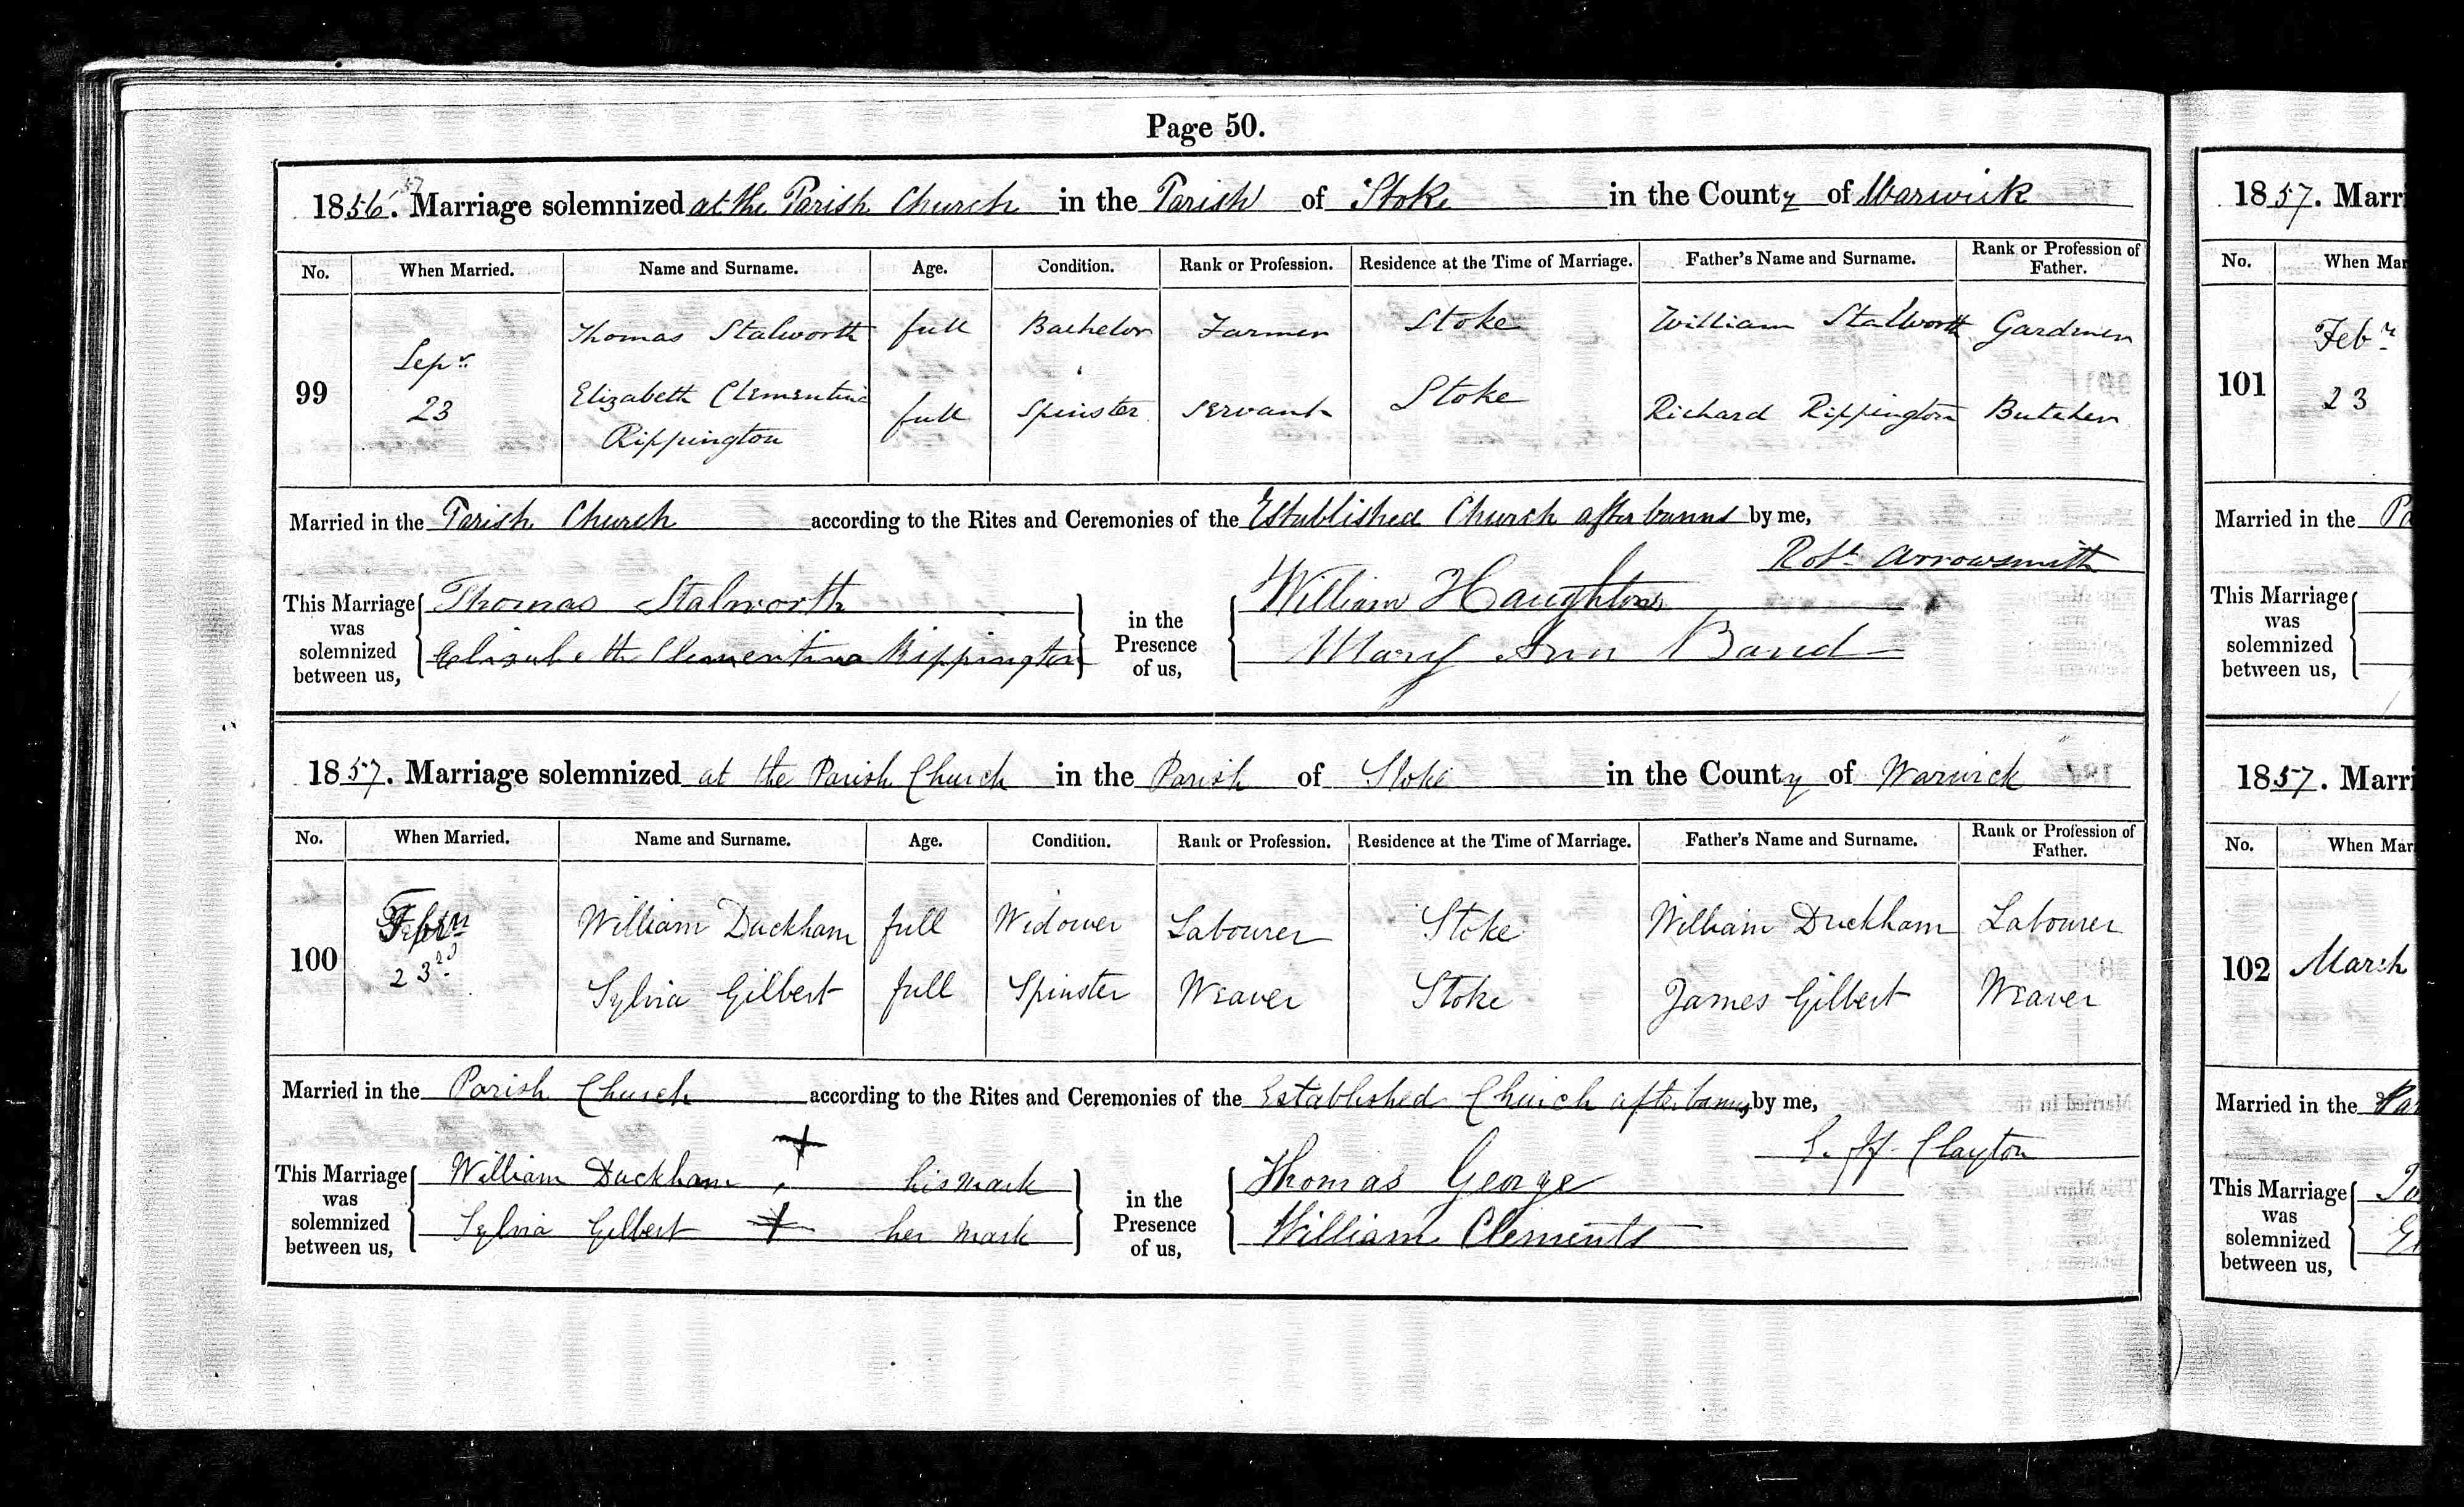 Page 50.
1856. Marriage solemnized at the Parish Church in the Parish of Stoke in the County of Warwick
No. When Married. Name and Surname. Age. Condition. Rank or Profession. Residence at the Time of Marriage. Father's Name and Surname. Rank or Profession of Father.
99 Sepr. 23
Thomas Stalworth full Bachelor Farmer Stoke William Stalworth Gardener
Elizabeth Clementina Rippington full Spinster Servant Stoke Richard Rippington Butcher
Married in the Parish Church according to the Rites and Ceremonies of the Established Church after banns by me,
Robt. Arrowsmith
This Marriage was solemnized between us, Thomas Stalworth
Elizabeth Clementina Rippington
in the Presence of us, William Haughton
Mary Ann Band
1857. Marriage solemnized at the Parish Church in the Parish of Stoke in the County of Warwick
No. When Married. Name and Surname. Age. Condition. Rank or Profession. Residence at the Time of Marriage. Father's Name and Surname. Rank or Profession of Father.
100 23rd
William Duckham full Widower Labourer Stoke William Duckham Labourer
Sylvia Gilbert full Spinster Weaver Stoke James Gilbert Weaver
Married in the Parish Church according to the Rites and Ceremonies of the Established Church after banns by me,
Clayton
This Marriage was solemnized between us, William Duckham + his mark
Sylvia Gilbert + her mark
in the Presence of us, Thomas George
William Clements
1857. Marri
No. When Mar
101 Feby. 23
Married in the Pa
This Marriage was solemnized between us,
1857. Marri
No. When Mar
102 March
Married in the Par
This Marriage was solemnized between us,